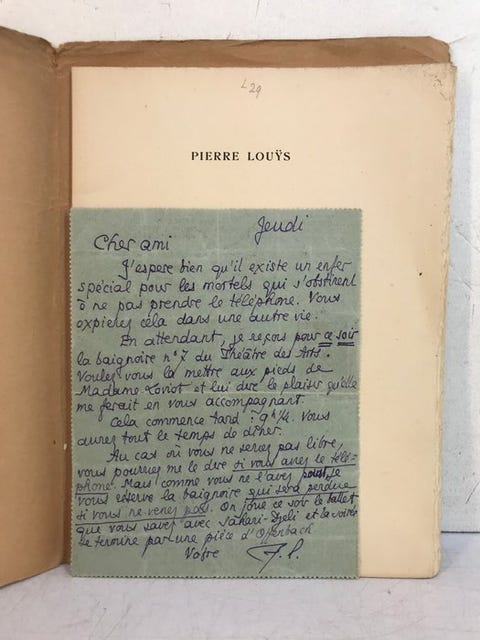 29
PIERRE LOUŸS
Jeudi
Cher ami
J'espere bien qu'il existe un enfer
spécial pour les mortels qui s'obstinent
à ne pas prendre le téléphone. Vous
expierez cela dans une autre vie.
En attendant, je reçois pour ce soir
la baignoire n° 7 du Théâtre des Arts.
Voulez vous la mettre aux pieds de
Madame Loviot et lui dire le plaisir qu'elle
me ferait en vous accompagnant.
Cela commence tard : 9h 1/4. Vous
aurez tout le temps de dîner.
Au cas où vous ne seriez pas libre,
vous pourrez me le dire si vous avez le télé-
phone. Mais comme vous ne l'avez pas, je
vous réserve la baignoire qui sera perdue
si vous ne venez pas. On joue ce soir le ballet
que vous savez avec Sahari-Djeli et la soirée
se termine par une pièce d'Offenbach
Votre